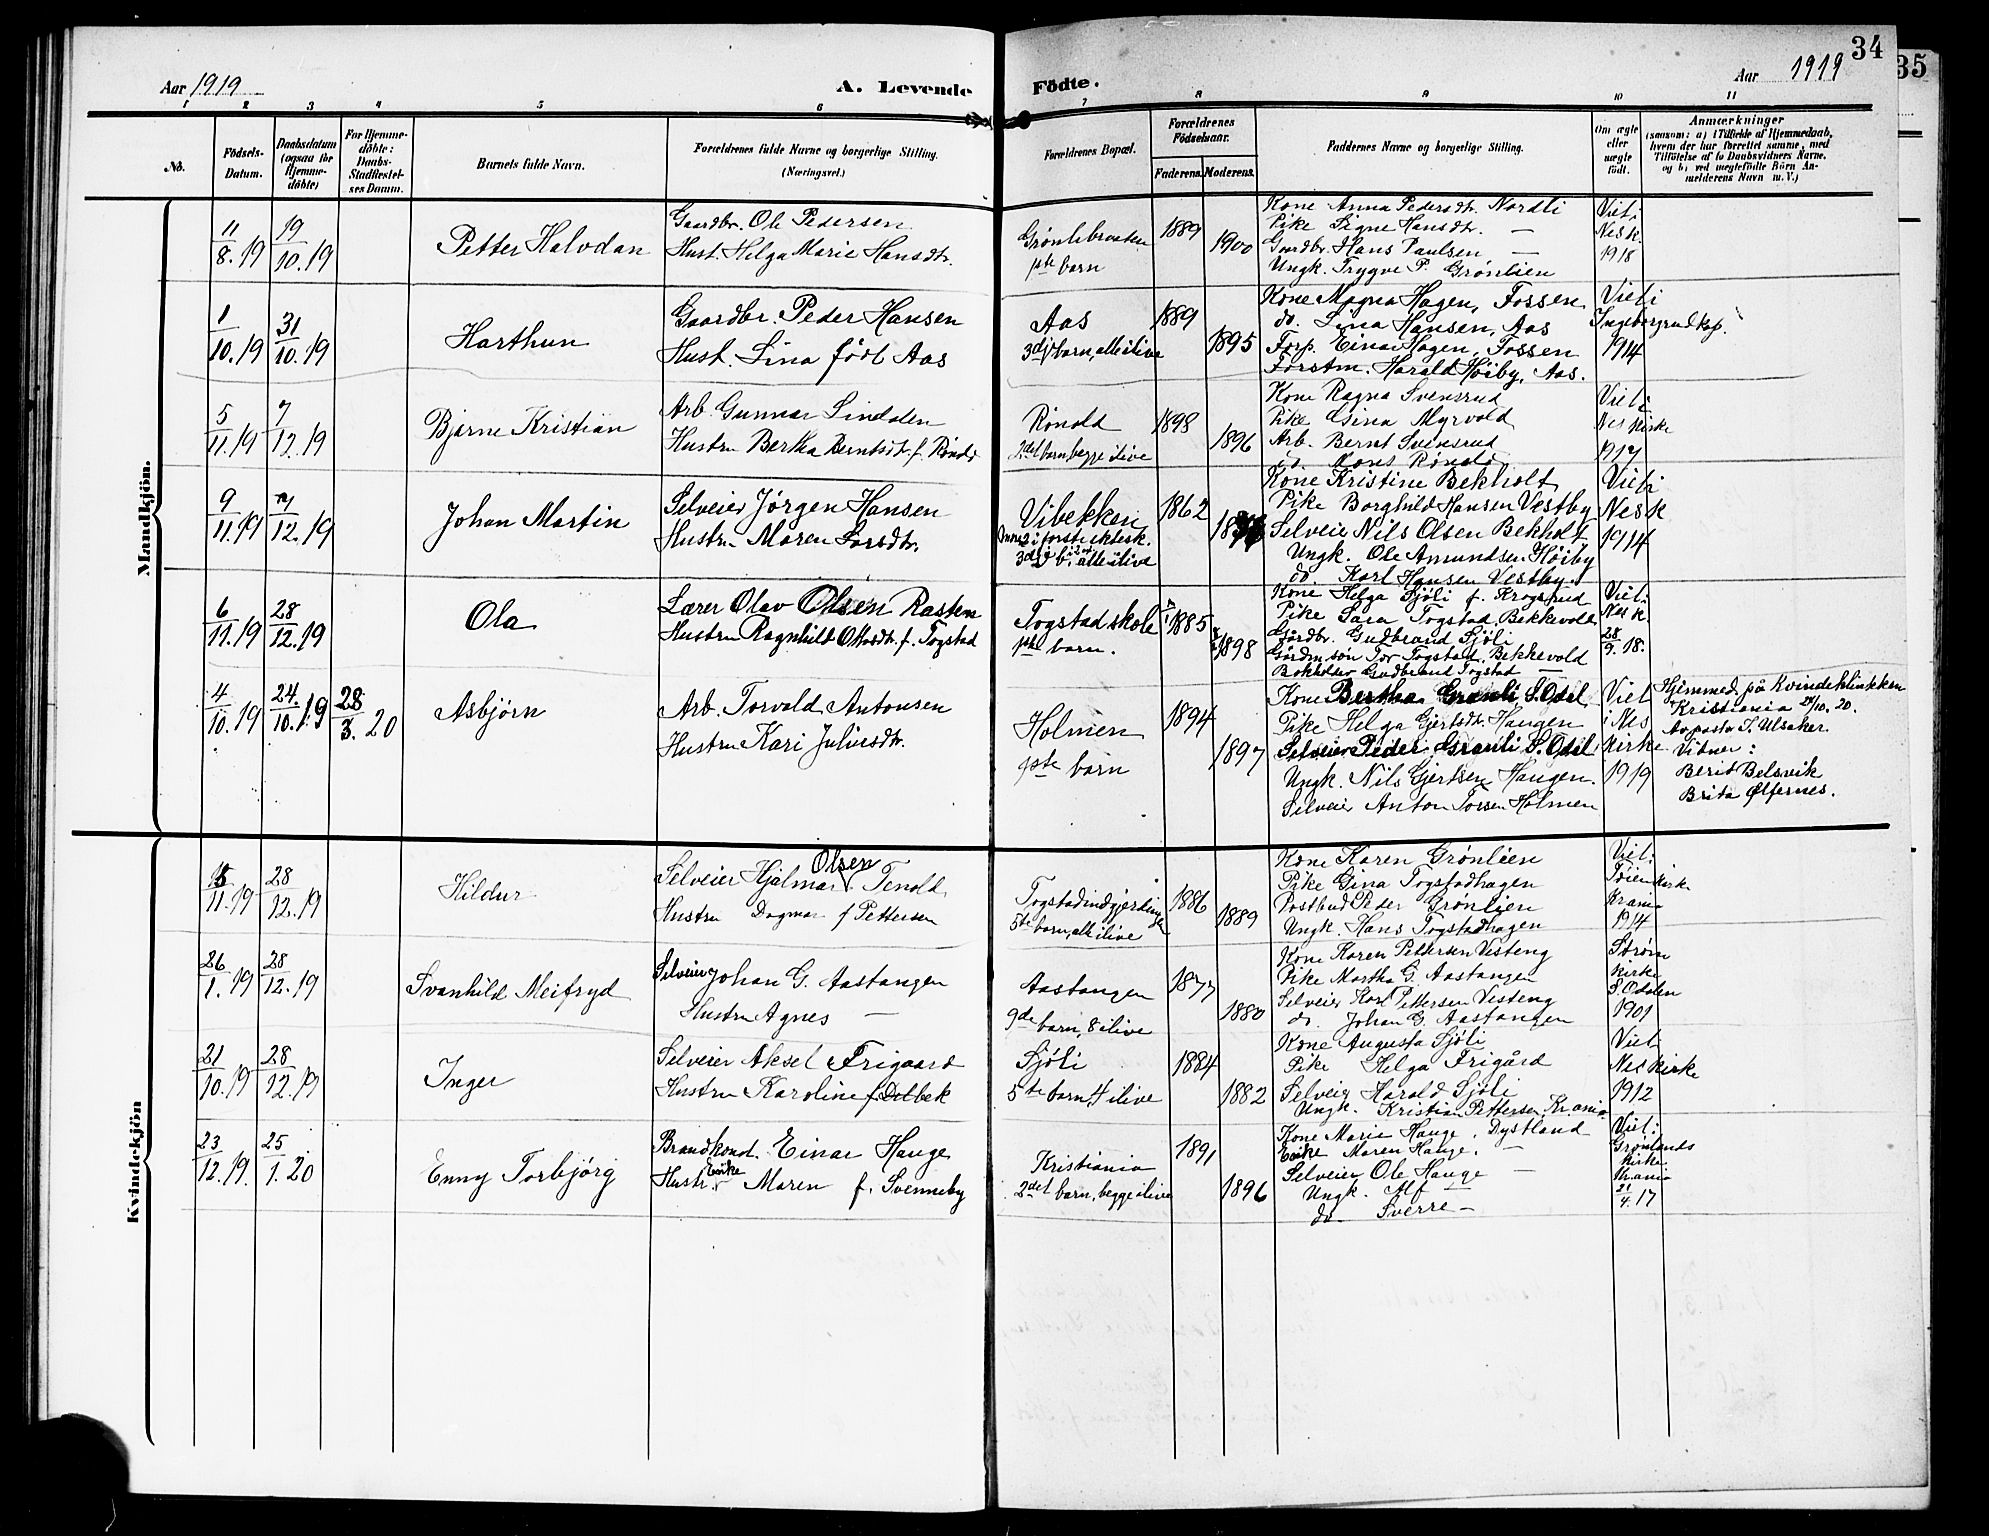 34
35
Aar 1919
A. Levende
Födte.
Aar 1919
1 2 3 4 5 6 7 8 9 10 11
No.
Födsels-
Datum.
Daabsdatum
(ogsaa for
Hjemme-
döbte)
For Hjemme-
döbte:
Daabs-
Stadfæstel-
ses Datum.
Barnets fulde Navn.
Forældrenes fulde Navne og borgerlige Stilling.
(Næringsvei.)
Forældrenes Bopæl.
Forældrenes
Födselsaar.
Faderens. Moderens.
Faddernes Navne og borgerlige Stilling.
Om ægte
eller
uægte
födt.
Anmærkninger
(saasom: a) i Tilfælde af Hjemmedaab,
hvem der har forrettet samme, med
Tilföielse af to Daabsvidners Navne,
og b) ved uægtefödte Börn An-
melderens Navn m.V.)
Mandkjön.
11/8.19 19/10.19
Petter Halvdan
Gaardbr. Ole Pedersen
Hust. Helga Marie Hansdtr.
Grønlibraaten
1ste barn
1889
1900
Kone Anna Pedersdtr. Nordli
Pike Signe Hansdtr. —
Gaardbr. Hans Paulsen —
Ungk. Trygve P. Grønlien
Viet i
Nesk.
1918
1/10.19 31/10.19
Harthun
Gaardbr. Peder Hansen
Hust. Lina født Aas
Aas
3dje barn, alle ilive
1889
1895
Kone Magna Hagen, Fossen
do. Lina Hansen, Aas
Forp. Einar Hagen, Fossen
Forstm. Harald Høiby, Aas.
Viet i
Ingeborgrud kap.
1914
5/11.19 7/12.19
Bjarne Kristian
Arb. Gunnar Lindalen
Hustru Bertha Berntsdt. f. Rønold
Rønold
2det barn, begge ilive
1898
1896
Kone Ragna Svensrud
Pike Gina Myrvold
Arb. Bernt Svensrud
do Mons Rønold
Viet i
Nes kirke
1917
9/11.19 7/12.19
Johan Martin
Selveier Jørgen Hansen
Hustru Maren Larsdtr.
Vibekken
2 i første ektesk.
3dje b. i 2det, alle ilive
1862
Kone Kristine Bekholt
Pike Borghild Hansen Vestby
Selveier Nils Olsen Bekholt
Ungk. Ole Amundsen Høiby
do. Karl Hansen Vestby
Viet i
Nesk
1914
6/11.19 28/12.19
Ola
Lærer Olav Olsen Rasten
Hustru Ragnhild Ottosdtr. f. Togstad
Togstad skole
1ste barn.
1885
1898
Kone Helga Sjøli f. Krogsrud
Pike Sara Togstad, Bekkevold
Gårdbr. Gudbrand Sjøli
Gårdm søn Tor Togstad, Bekkevold
Bokholder Gudbrand Togstad
Viet i
Nesk.
28/9.18.
4/10.19 24/10.19 28/3.20
Asbjörn
Arb. Torvald Antonsen
Hustru Kari Juliusdtr.
Holmen
1ste barn
1894
1897
Kone Bertha Granli S. Odal
Pike Helga Gjertsdtr. Haugen
Selveier Peder Granli S. Odal
Ungk. Nils Gjertsen Haugen.
Selveier Anton Torsen Holmen
Viet
i Nes
Kirke
1919
Hjemmed. på Kvindeklinikken
Kristiania 24/10. 20.
Av pastor S. Ulsaker.
Vidner:
Berit Belsvik
Brita Ølfernes.
Kvindekjön
15/11.19 28/12.19
Hildur
Olsen
Selveier Hjalmar Tenold
Hustru Dagmar f Pettersen
Togstadindgjerdingen
5te barn, alle ilive
1886
1889
Kone Karen Grønlien
Pike Gina Togstadhagen
Postbud Peder Grønlien
Ungk. Hans Togstadhagen
Viet i
Tøien kirk
Krania
1914
26/1.19 28/12.19
Svanhild Meifryd
Selveier Johan G. Aastangen
Hustru Agnes —
Aastangen
9de barn, 8 ilive
1877
1880
Kone Karen Pettersen Vesteng
Pike Martha G. Aastangen
Selveier Karl Pettersen Vesteng
do. Johan G. Aastangen
Strøm
kirke
S. Odalen
1901
21/10.19 28/12.19
Inger
Selveier Aksel Frigaard
Hustru Karoline f. Dælbek
Sjøli
5te barn, 4 ilive
1884
1882
Kone Augusta Sjøli
Pike Helga Frigård
Selveier Harald Sjøli
Ungk. Kristian Pettersen, Kr.ania
Viet
Nes kirke
1912
23/12.19. 25/1.20
Enny Torbjørg
Brandkonst. Einar Hauge
Hustr. Enke Maren f. Svenneby
Kristiania
2det barn, begge ilive
1891
1896
Kone Marie Hauge, Dystland
Enke Maren Hauge, —
Selveier Ole Hauge —
Ungk. Alf —
do Sverre —
Viet i
Grønlands
Kirke.
Kr.ania
21/4.17